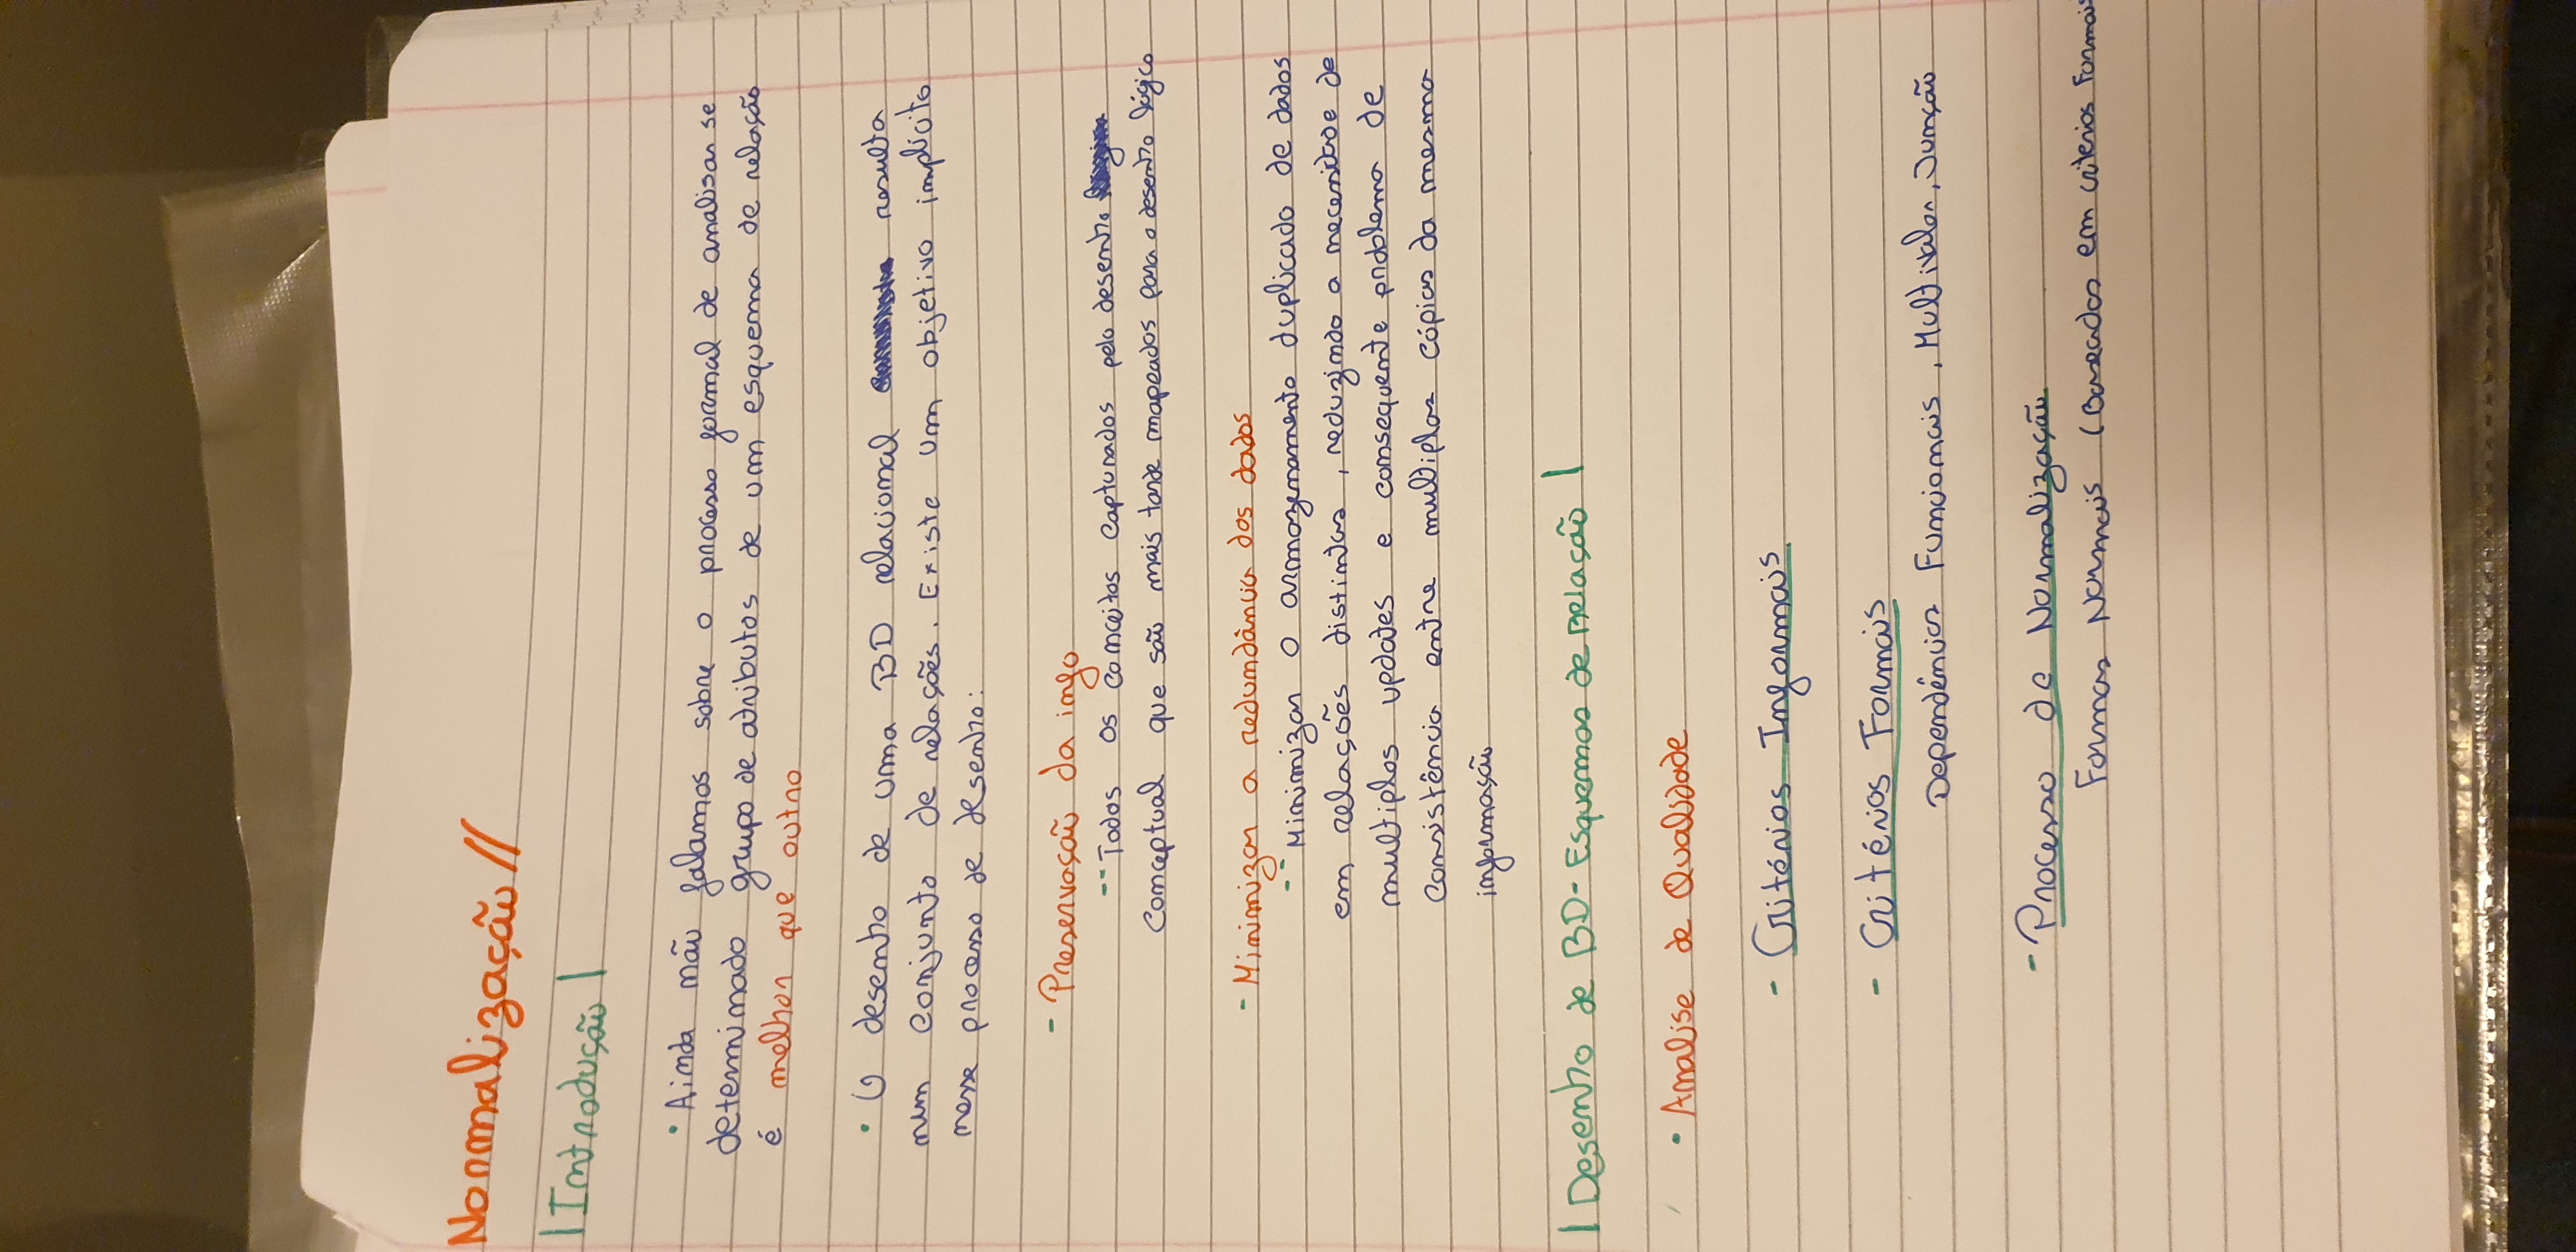 Normalização //
| Introdução |
• Ainda não falamos sobre o processo formal de analisar se
determinado grupo de atributos de um esquema de relação
é melhor que outro
• O desenho de uma BD relacional resulta
num conjunto de relações. Existe um objetivo implícito
nesse processo de desenho:
- Preservação da info
-- Todos os conceitos capturados pelo desenho
Conceptual que são mais tarde mapeados para o desenho lógico
- Minimizar a redundância dos dados
-- Minimizar o armazenamento duplicado de dados
em relações distintas, reduzindo a necessidade de
multiplos updates e consequente problema de
consistência entre multiplas cópias da mesma
informação
| Desenho de BD - Esquemas de Relação |
• Analise de Qualidade
- Critérios Informais
- Critérios Formais
Dependências Funcionais, Multivalor, Junção
- Processo de Normalização
Formas Normais (Baseadas em criterios Formais